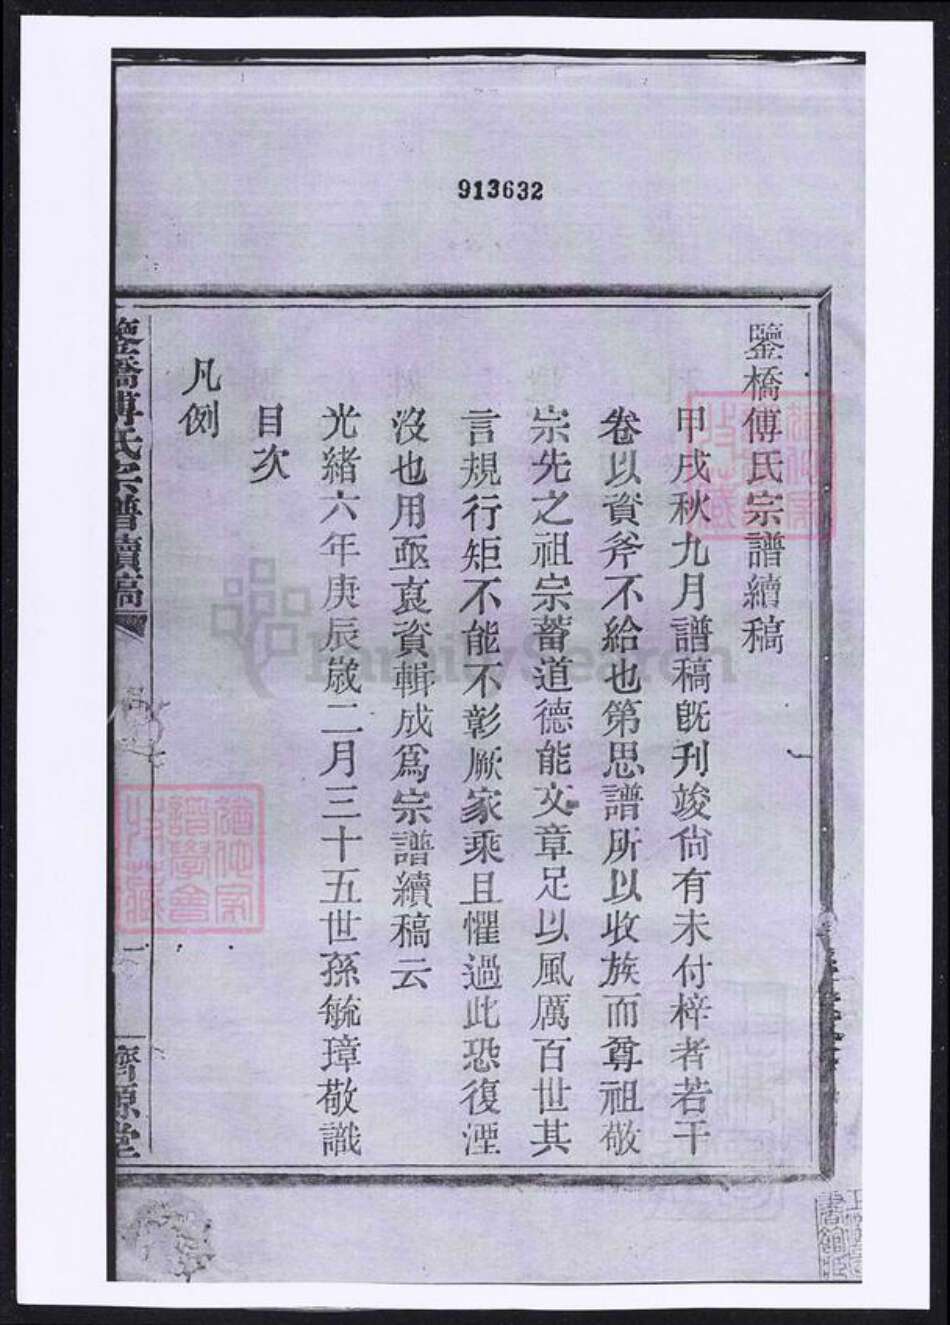 913632
鑒橋傅氏宗譜續稿
甲戌秋九月譜稿既刋竣尙有未付梓者若干
卷以資斧不給也第思譜所以收族而尊祖敬
宗先之祖宗蓄道德能文章足以風厲百世其
言規行矩不能不彰厥家乘且懼過此恐復湮
沒也用亟裒資輯成爲宗譜續稿云
光緒六年庚辰歲二月三十五世孫毓璋敬識
目次
凡例
鑒橋傅氏宗譜續稿
一
濟源堂
FamilySearch